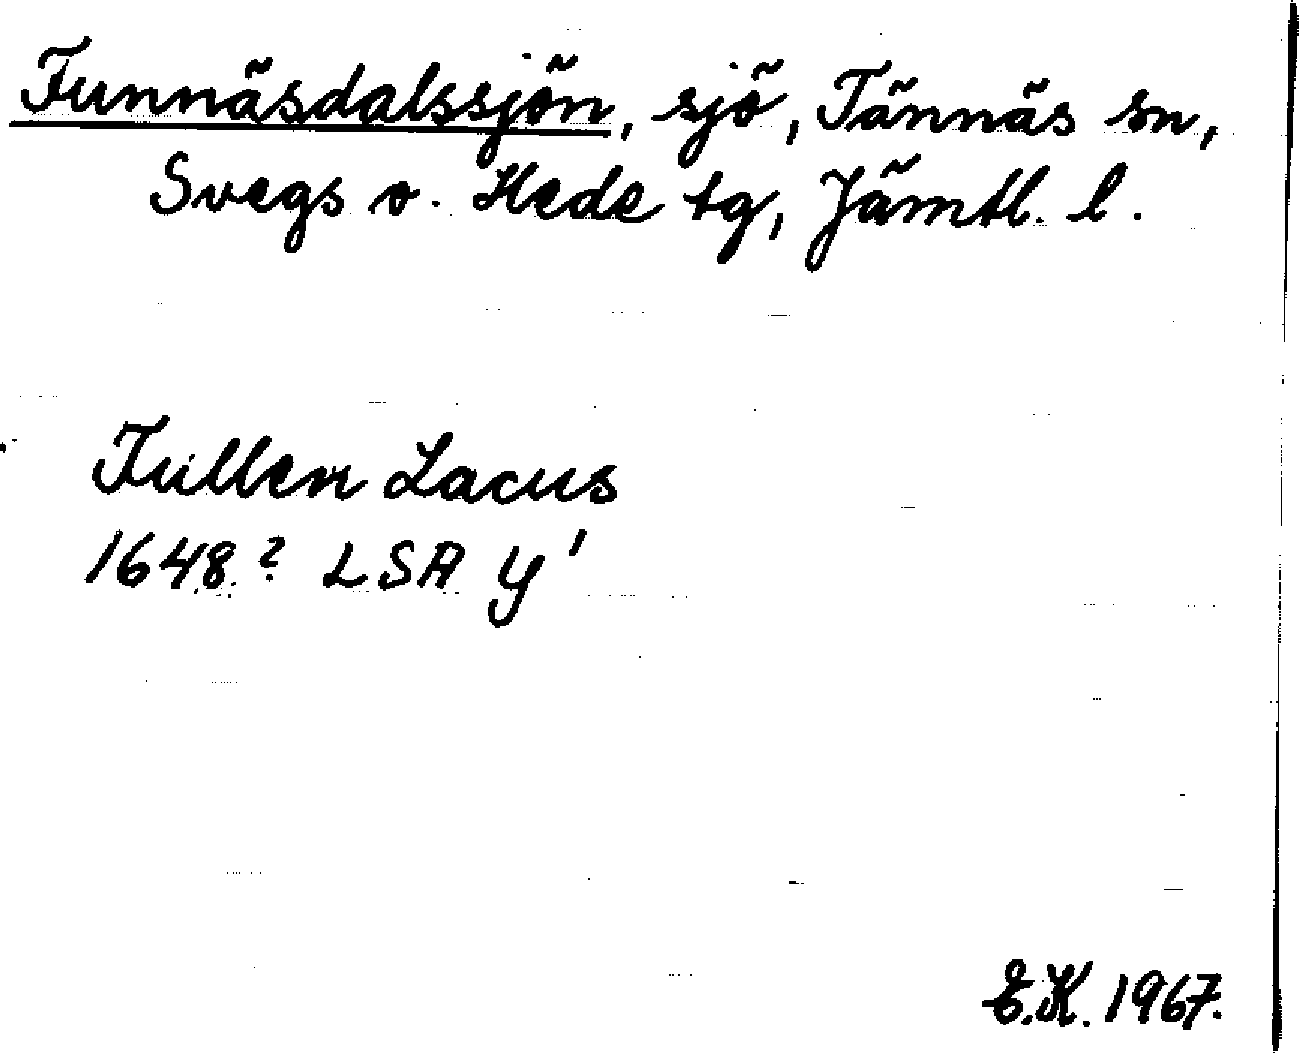 Funnäsdalssjön, sjö, Tännäs sn,
Svegs o. Hede tg, Jämtl. l.
Fullen Lacus
1648? LSA Y'
E.K. 1967.